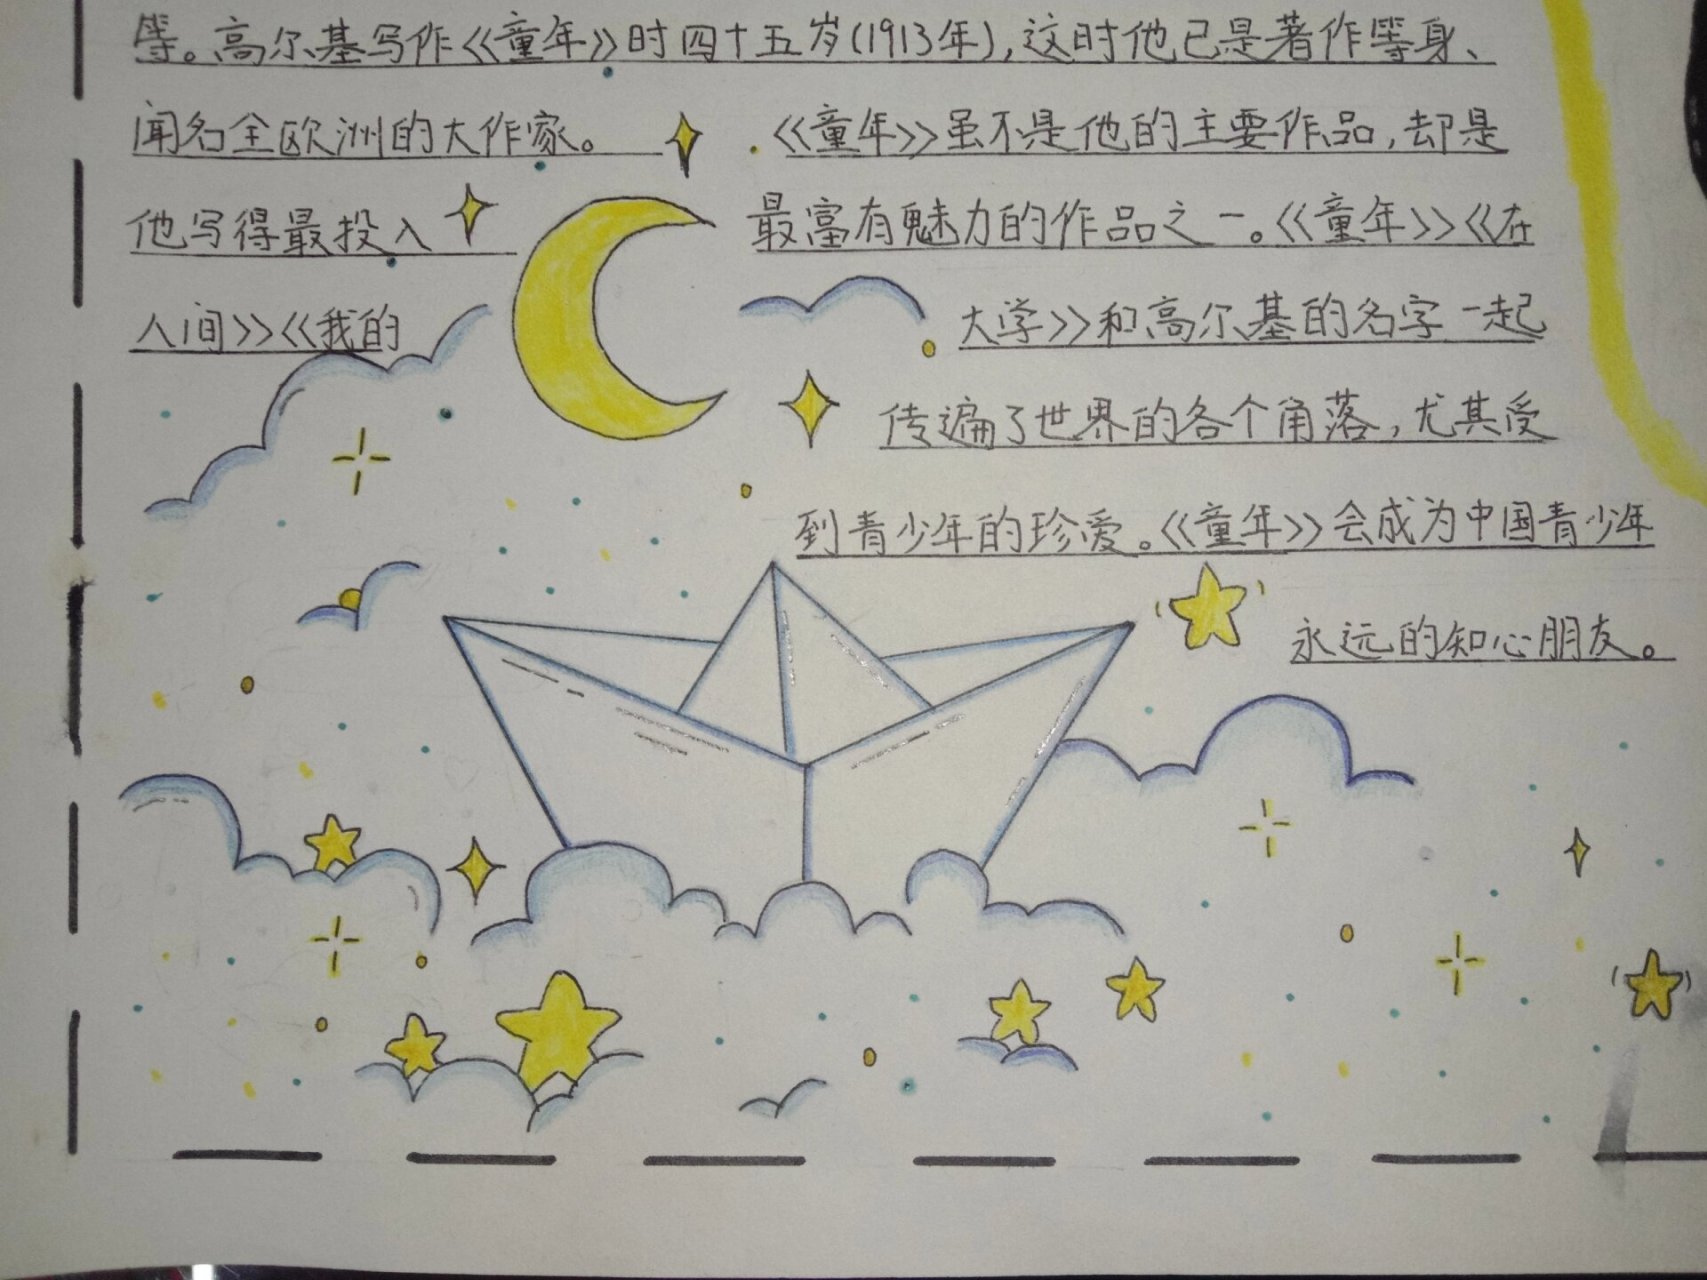 等。高尔基写作《童年》时四十五岁(1913年),这时他已是著作等身、
闻名全欧洲的大作家。 《童年》虽不是他的主要作品,却是
他写得最投入 最富有魅力的作品之一。《童年》《在
人间》《我的 大学》和高尔基的名字一起
传遍了世界的各个角落,尤其受
到青少年的珍爱。《童年》会成为中国青少年
永远的知心朋友。